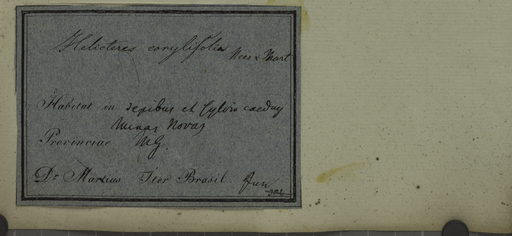 Helicteres corylifolia Nees & Mart
Habitat in sepibus et Sylvis caeduis
Minas Novas
Provinciae MG.
Dr Martius Iter Brasil. Jun